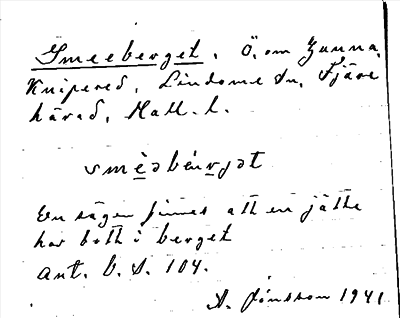 Smeeberget, Ö. om Gunna,
Knipered, Lindome sn, Fjäre
härad, Hall. l.
smèəbèrjət
En sägen finnes att en jätte
har bott i berget
Ant. b. S. 104.
A. Jönsson 1941